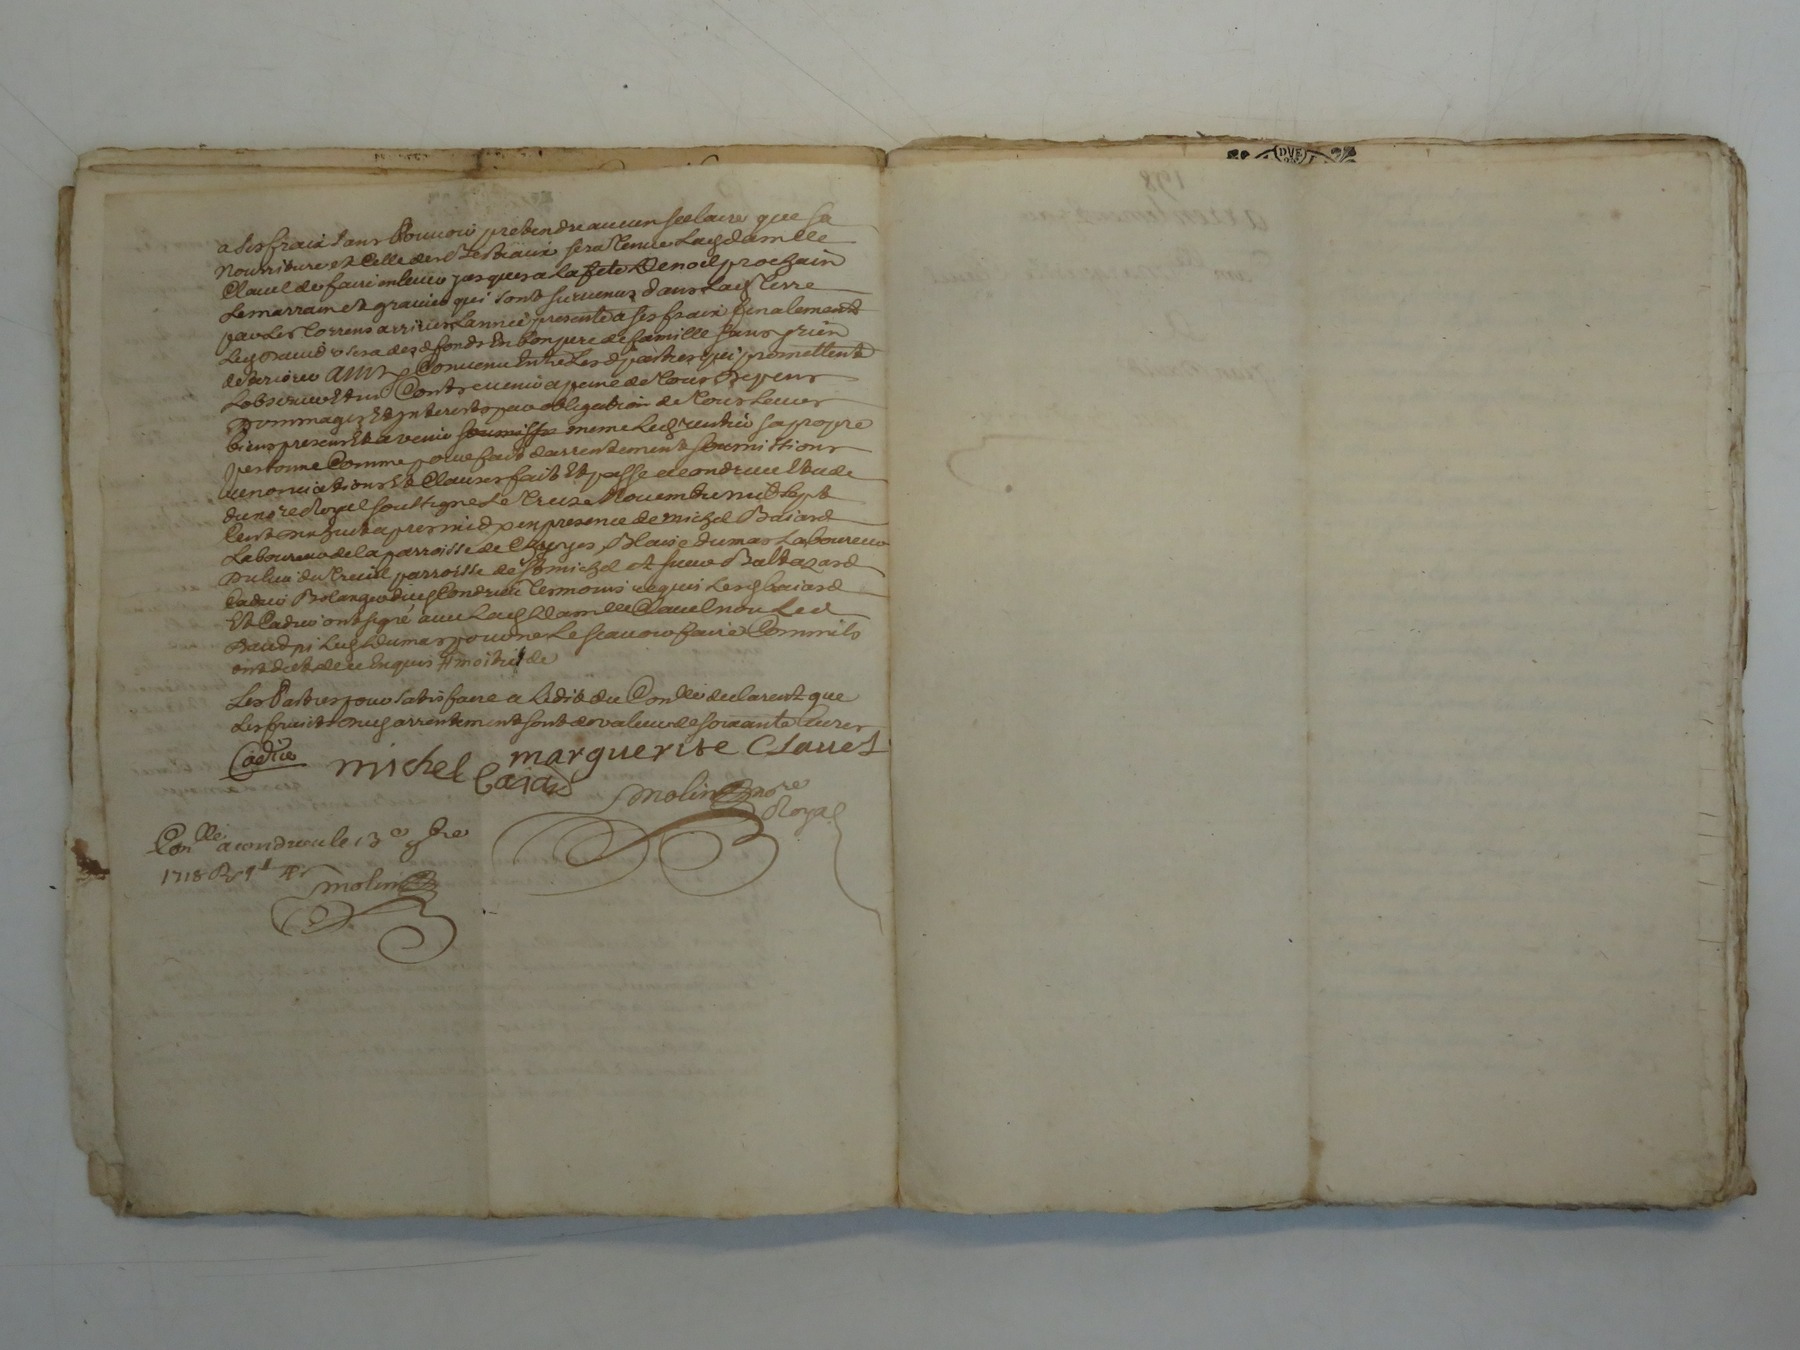 a ses fraix sans Pouvoir pretendre aucun sellaire que sa
nourriture et Celle des Bestiaux sera tenue lad damlle
Clavel de faire enlever jusques a la fete de noel prochain
Le marrain et gravier qui sont survenus dans lad terre
par Les torrens arrivés Lannée presente a ses fraix finalement
Led usera desd fonds En bon pere de famille sans rien
deteriorer ainsy Convenu Entre Lesd parties qui promettent
Lobserver Et ny Contrevenir a peine de tous depens
Dommages Et Interests par obligation de tous Leurs
biens presens Et avenir soumis meme Led sa propre
personne Comme pour fait darrentement soumittions
renonciations Et Clauses fait Et passé a Condrieu Etude
du nore Royal soussigné Le treize Novembre mil sept
Cent dix huit apres midy en presence de michel Baiard
Laboureur de la parroisse de Blaise dumas Laboureur
du lieu du treuil parroisse de St michel et sieur Baltazard
Cadier Bolanger dud Condrieu temoins requis Lesd baiard
Et Cadier ont signé avec Lad Damlle Clavel non Led
ny Led dumas pour ne Le scavoir faire Comme ils
ont dit de ce Enquis # moitié de
Les Parties pour satisfaire a Ledit du Conlle declarent que
Les fruits dud arrentement sont de valeur de soixante Livres
Cadier michel baiard marguerite Clavel
Molin nore
Royal
Conlle a condrieu le 13e 9bre
1718 R
Molin
DVE